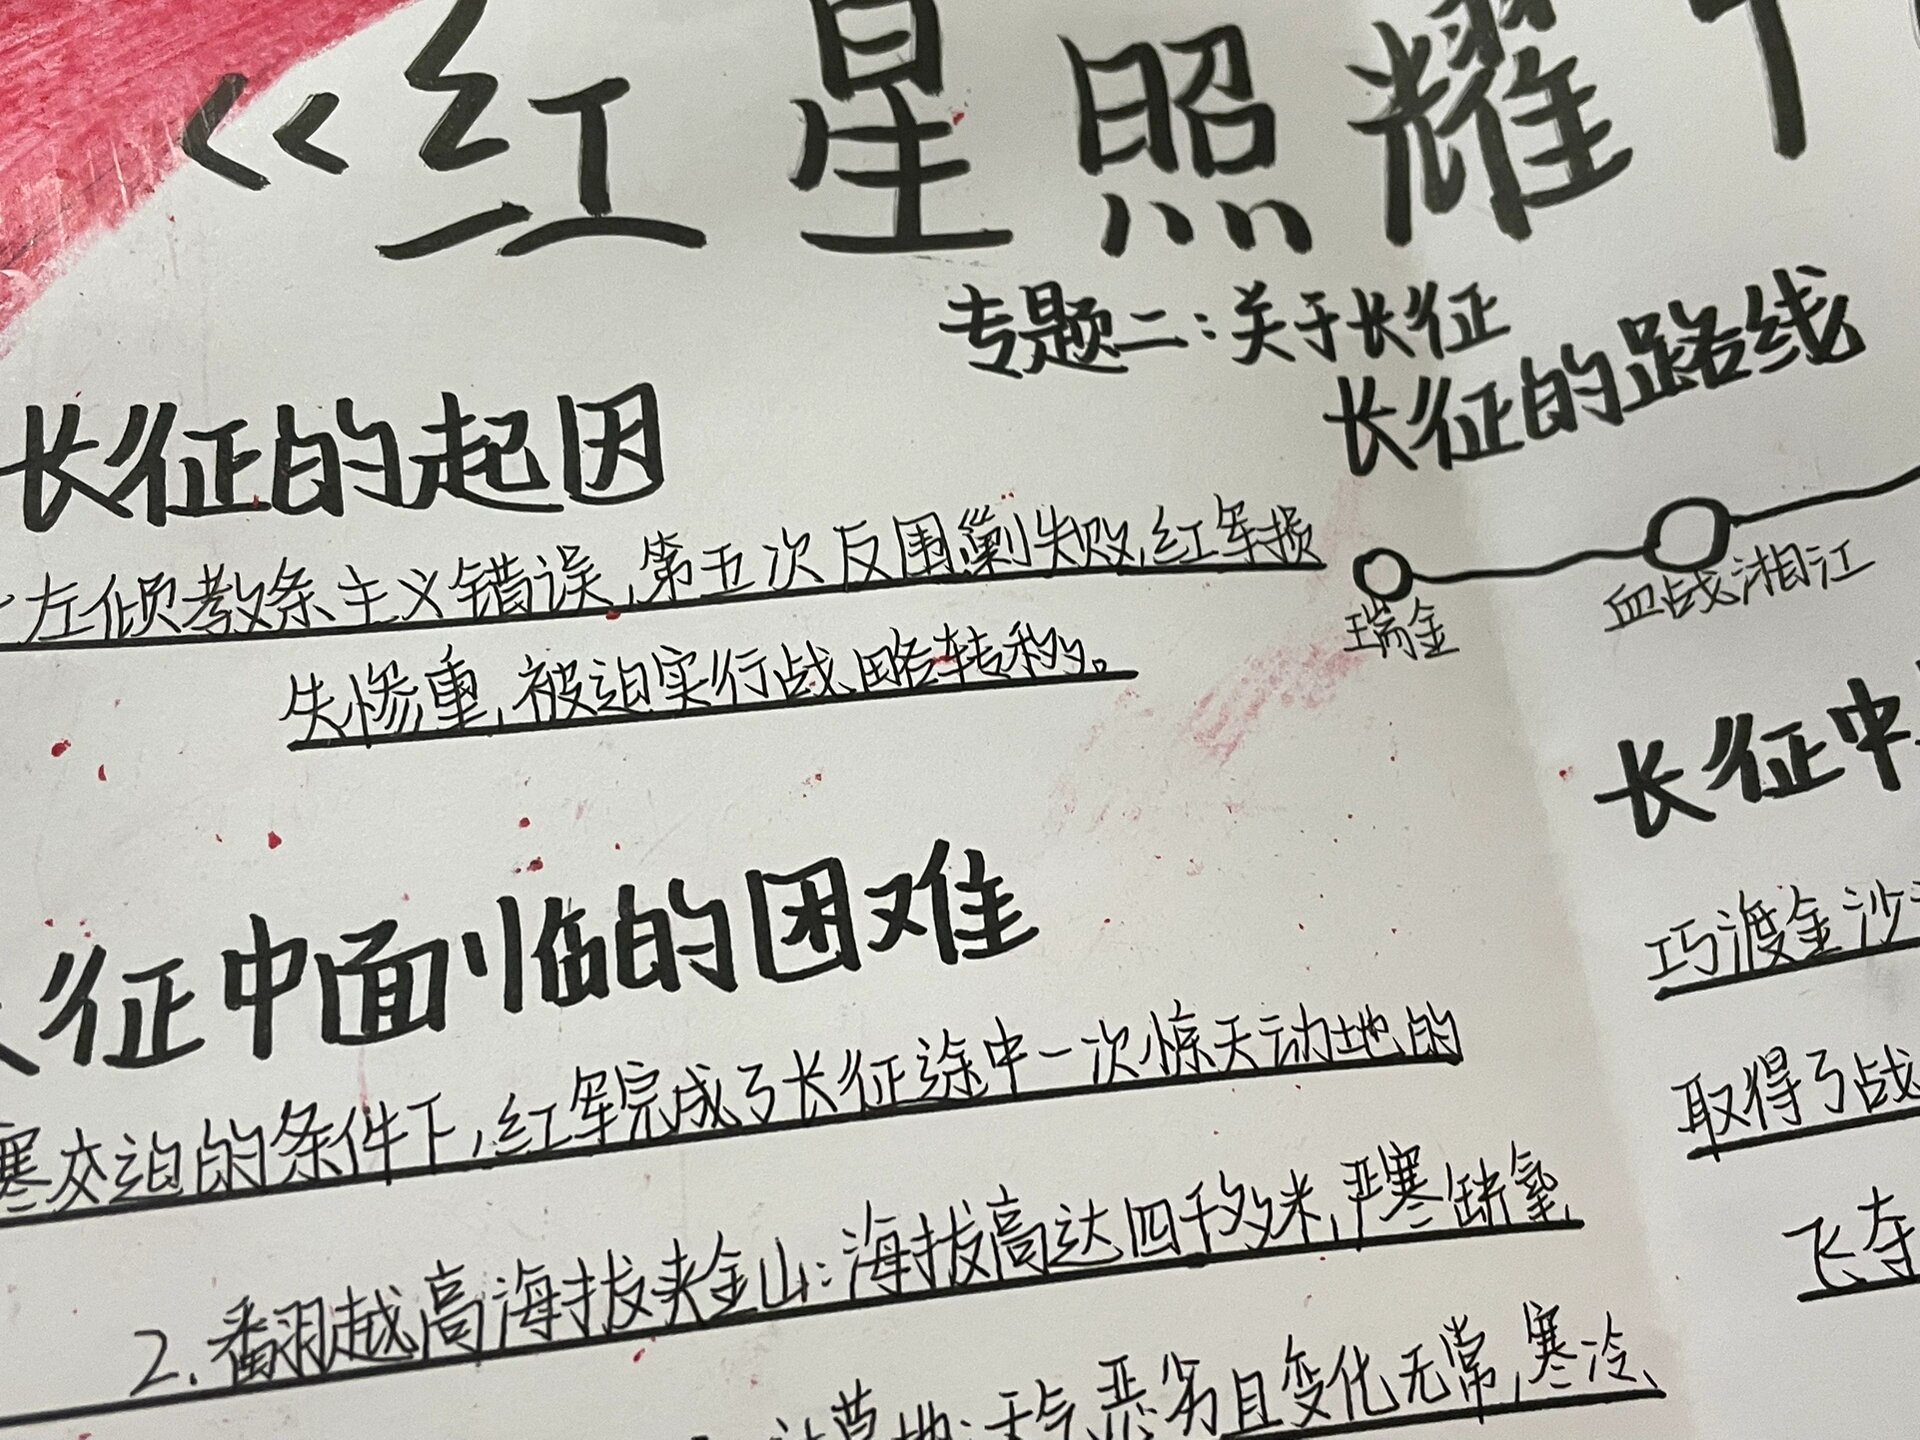 《红星照耀
专题二：关于长征
长征的起因
左倾教条主义错误,第五次反围剿失败,红军损
失惨重,被迫实行战略转移。
长征的路线
瑞金
血战湘江
征中面临的困难
寒交迫的条件下,红军完成了长征途中一次惊天动地的
2.翻越高海拔夹金山:海拔高达四千多米,严寒缺氧
草地:天气恶劣且变化无常,寒冷、
长征中
巧渡金沙
取得了战
飞夺